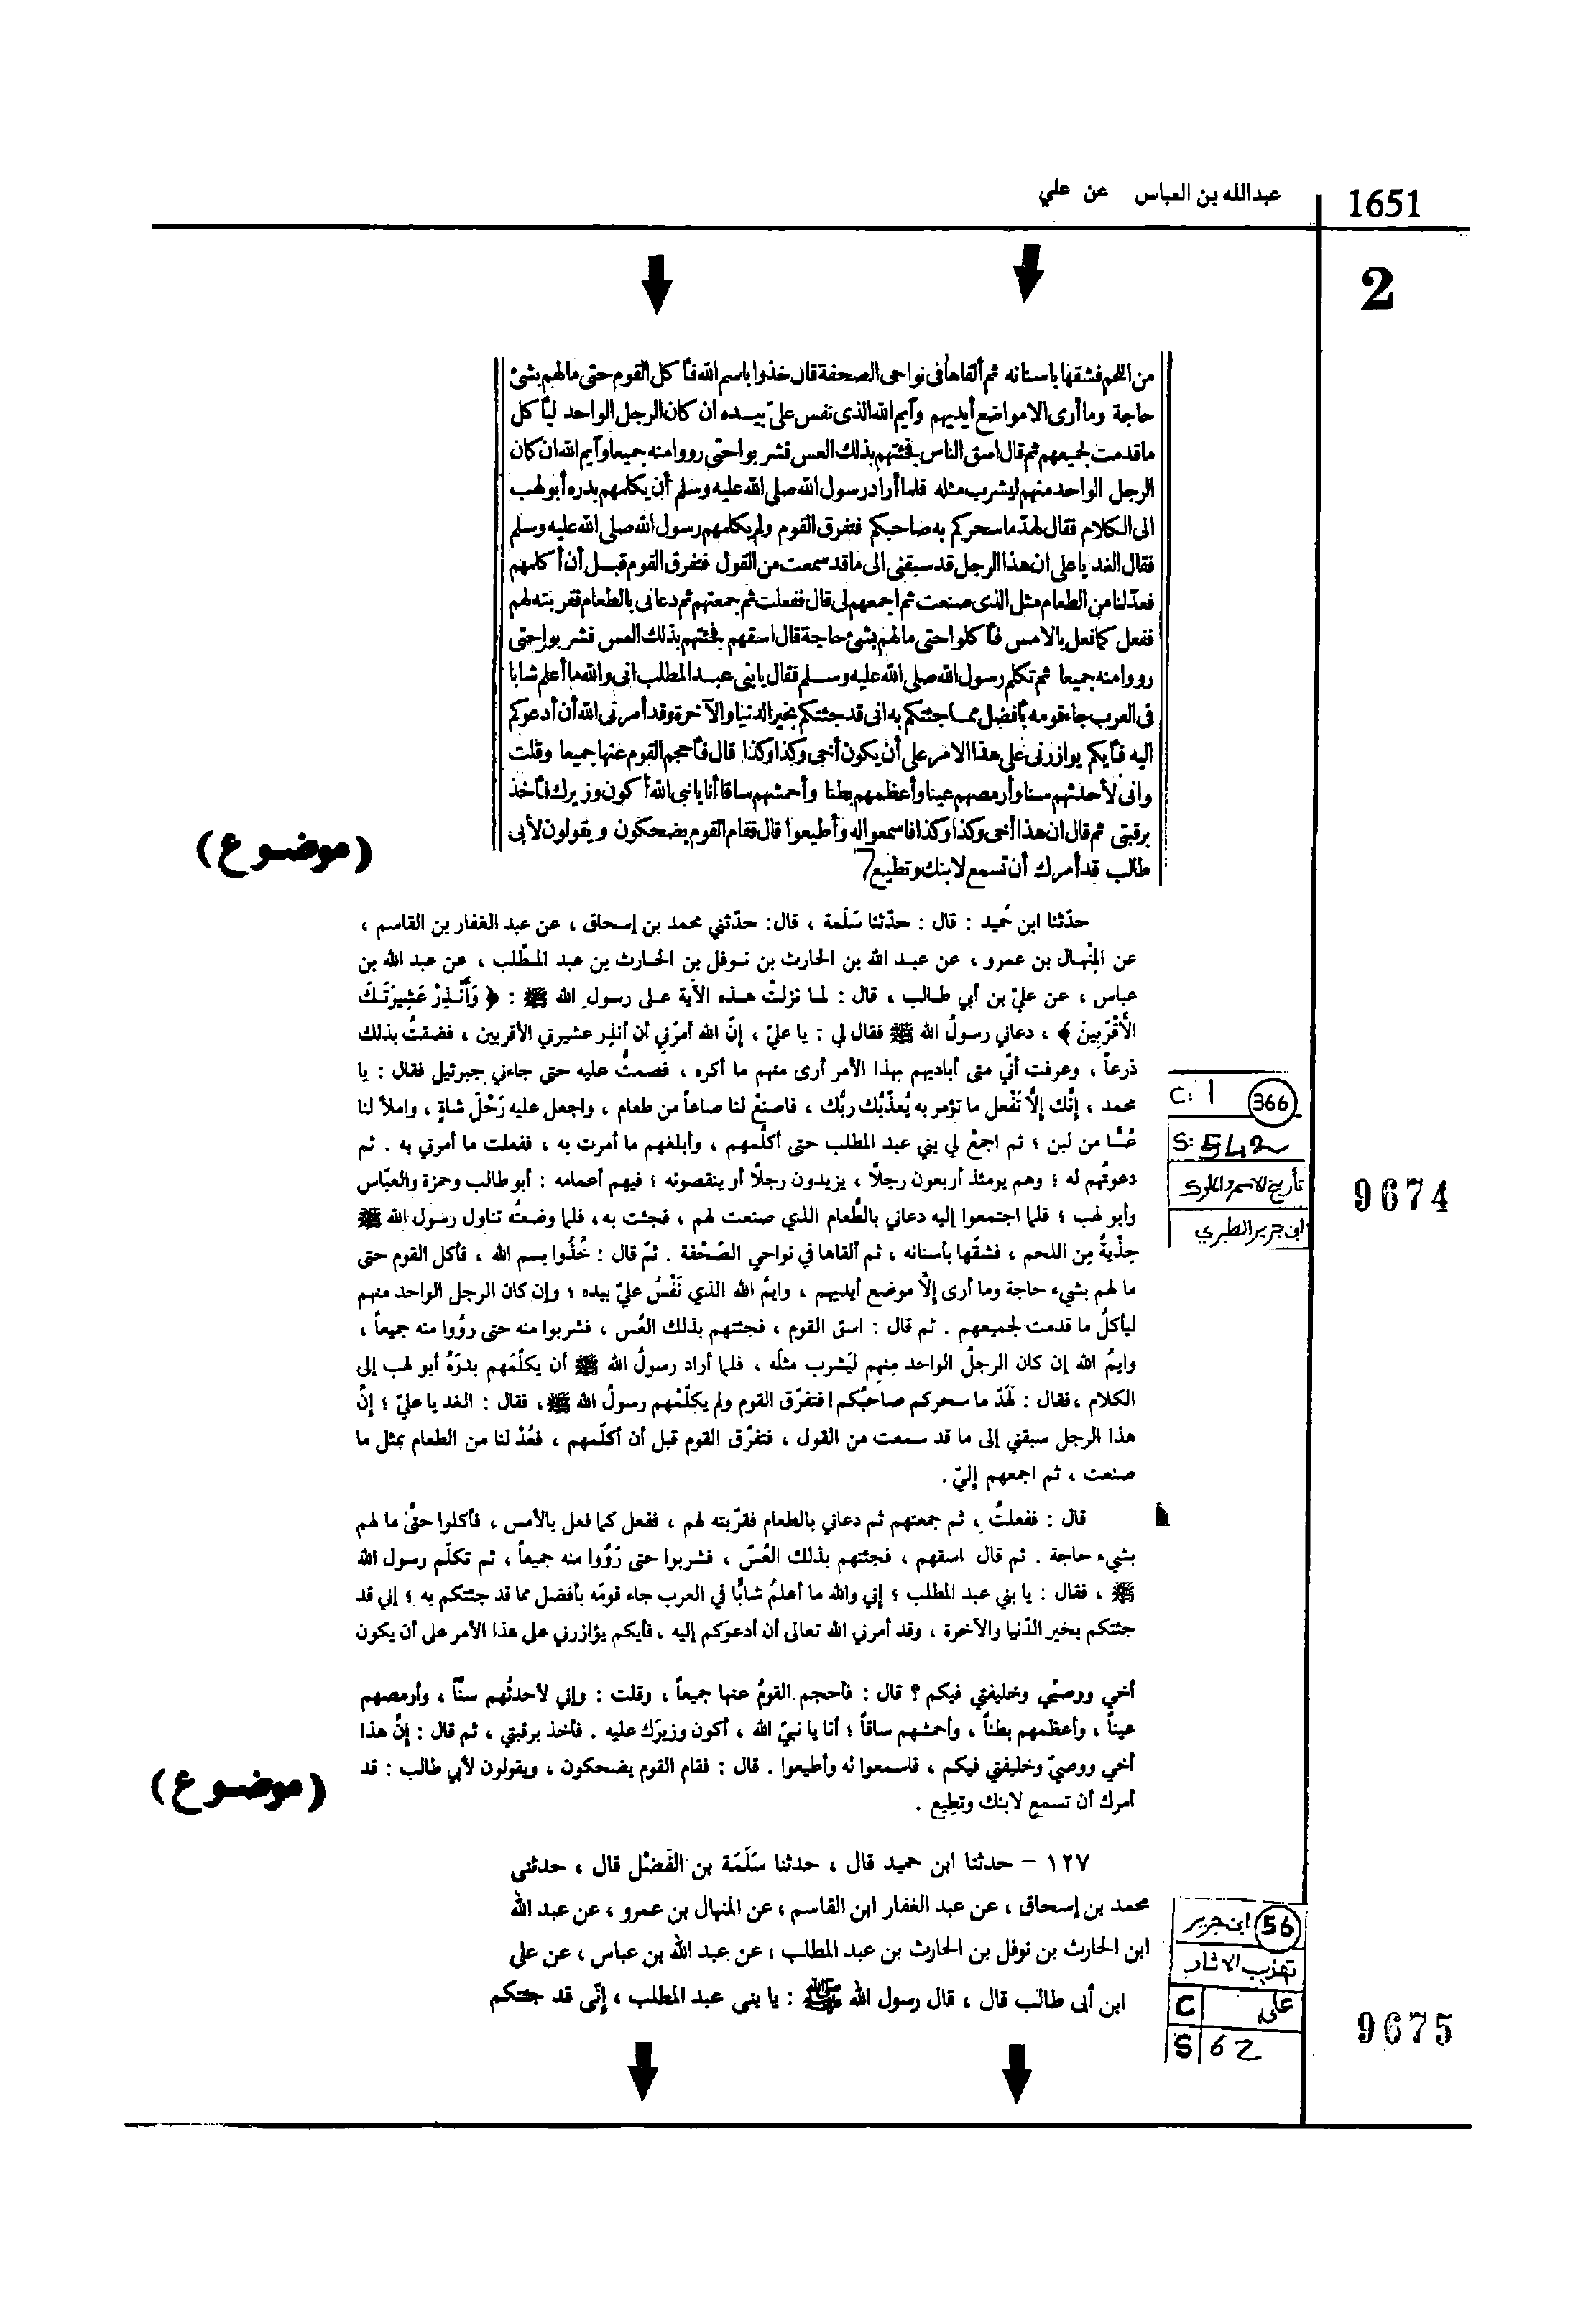 1651
عبدالله بن العباس عن علي
2
من اللحم فشقها باسنانه ثم ألقاها فى نواحى الصحفة قال خذوا باسم الله فأ كل القوم حتى مالهم بشئ
حاجة وما أرى الامواضع أيديهم وآيم الله الذى نفس علىّ بيده ان كان الرجل الواحد ليأ كل
ماقدمت لجميعهم ثم قال اسق الناس فجئتهم بذلك العس فشربوا حتى رووامنه جميعاوآيم الله ان كان
الرجل الواحد منهم ليشرب مثله فلما أراد رسول الله صلى الله عليه وسلم أن يكلمهم بدره أبولهب
الى الكلام فقال لهدّ ماسحركم به صاحبكم فتفرق القوم ولم يكلمهم رسول الله صلى الله عليه وسلم
فقال الغد ياعلى ان هذا الرجل قد سبقنى الى ماقد سمعت من القول فتفرق القوم قبل أن أ كلمهم
فعدّلنا من الطعام مثل الذى صنعت ثم اجمعهم لى قال ففعلت ثم جمعتهم ثم دعانى بالطعام فقربته لهم
ففعل كمافعل بالامس فأ كلوا حتى مالهم بشئ حاجة قال اسقهم فجئتهم بذلك العس فشربوا حتى
رووامنه جميعا ثم تكلم رسول الله صلى الله عليه وسلم فقال يابنى عبد المطلب انى والله ما أعلم شابا
فى العرب جاء قومه بأفضل مما جئتكم به انى قد جئتكم بخير الدنيا والآخرة وقد أمرنى الله أن أدعوكم
اليه فأيكم يوازرنى على هذا الامر على أن يكون أخى وكذا وكذا قال فأحجم القوم عنها جميعا وقلت
وانى لأحدثهم سنا وأرمصهم عينا وأعظمهم بطنا وأحمشهم ساقا أنا يانبى الله أ كون وزيرك فأخذ
برقبتى ثم قال ان هذا أخى وكذا وكذا فاسمعوا له وأطيعوا قال فقام القوم يضحكون ويقولون لأبى
طالب قد أمرك أن تسمع لابنك وتطيع
(موضوع)
حدّثنا ابن حُميد : قال : حدّثنا سَلَمة ، قال: حدّثني محمد بن إسحاق ، عن عبد الغفار بن القاسم ،
عن المِنْهال بن عمرو ، عن عبد الله بن الحارث بن نوفل بن الحارث بن عبد المطّلب ، عن عبد الله بن
عباس ، عن عليّ بن أبي طالب ، قال : لما نزلتْ هذه الآية على رسول الله ﷺ : ﴿ وَأَنْذِرْ عَشِيرَتَكَ
الأَقْرَبِينَ ﴾ ، دعاني رسولُ الله ﷺ فقال لي : يا عليّ ، إنّ الله أمرَني أن أنذِر عشيرتي الأقربين ، فضقتُ بذلك
ذرعاً ، وعرفت أنّي متى أباديهم بهذا الأمر أرى منهم ما أكره ، فصمتُّ عليه حتى جاءني جبرئيل فقال : يا
محمد ، إنَّك إلَّا تَفْعل ما تؤمر به يُعذّبْك ربُّك ، فاصنعْ لنا صاعاً من طعام ، واجعل عليه رَحْلَ شاةٍ ، واملأ لنا
عُسًّا من لبن ؛ ثم اجمعْ لي بني عبد المطلب حتى أكلّمهم ، وأبلغهم ما أمرت به ، ففعلت ما أمرني به . ثم
دعوتُهم له ؛ وهم يومئذ أربعون رجلاً ، يزيدون رجلًا أو ينقصونه ؛ فيهم أعمامه : أبو طالب وحمزة والعبّاس
وأبو لهب ؛ فلما اجتمعوا إليه دعاني بالطَّعام الذي صنعت لهم ، فجئت به ، فلما وضعتُه تناول رسول الله ﷺ
حِذْيةً مِن اللحم ، فشقّها بأسنانه ، ثم ألقاها في نواحي الصَّحْفة . ثمّ قال : خُذُوا بسم الله ، فأكل القوم حتى
ما لهم بشيء حاجة وما أرى إلَّا موضع أيديهم ، وايمُ الله الذي نَفْسُ عليّ بيده ؛ وإن كان الرجل الواحد منهم
ليأكلُ ما قدمت لجميعهم . ثم قال : اسق القوم ، فجئتهم بذلك العُس ، فشربوا منه حتى روُوا منه جميعاً ،
وايمُ الله إن كان الرجلُ الواحد منهم ليَشرب مثلَه ، فلما أراد رسولُ الله ﷺ أن يكلّمَهم بدرَهُ أبو لهب إلى
الكلام ،فقال : لَهَدّ ما سحركم صاحبُكم ! فتفرّق القوم ولم يكلّمْهم رسولُ الله ﷺ ، فقال : الغد يا عليّ ؛ إنَّ
هذا الرجل سبقني إلى ما قد سمعت من القول ، فتفرّق القوم قبل أن أكلّمهم ، فعُدْ لنا من الطعام بمثل ما
صنعت ، ثم اجمعهم إليّ .
C: ١ 366
S: 542
تأريخ الاسم والملوك
ابن جرير الطبري
9674
قال : ففعلتُ ، ثم جمعتهم ثم دعاني بالطعام فقرّبته لهم ، ففعل كما فعل بالأمس ، فأكلوا حتىّ ما لهم
بشيء حاجة . ثم قال اسقهم ، فجئتهم بذلك العُسّ ، فشربوا حتى رَوُوا منه جميعاً ، ثم تكلّم رسول الله
ﷺ ، فقال : يا بني عبد المطلب ؛ إني والله ما أعلمُ شابًّا في العرب جاء قومَه بأفضل مما قد جئتكم به ؛ إني قد
جئتكم بخير الدّنيا والآخرة ، وقد أمرني الله تعالى أن أدعوَكم إليه ، فأيكم يؤازرني على هذا الأمر على أن يكون
أخي ووصيّي وخليفتي فيكم ؟ قال : فأحجم القومُ عنها جميعاً ، وقلت : وإني لأحدثُهم سنًّا ، وأرمصهم
عيناً ، وأعظمهم بطناً ، وأحمشهم ساقاً ؛ أنا يا نبيّ الله ، أكون وزيرَك عليه . فأخذ برقبتي ، ثم قال : إنَّ هذا
أخي ووصيّ وخليفتي فيكم ، فاسمعوا له وأطيعوا . قال : فقام القوم يضحكون ، ويقولون لأبي طالب : قد
أمرك أن تسمع لابنك وتطيع .
(موضوع)
١٢٧ – حدثنا ابن حميد قال ، حدثنا سَلَمَة بن الفَضْل قال ، حدثنى
محمد بن إسحاق ، عن عبد الغفار ابن القاسم ، عن المنهال بن عمرو ، عن عبد الله
ابن الحارث بن نوفل بن الحارث بن عبد المطلب ، عن عبد الله بن عباس ، عن على
ابن أبى طالب قال ، قال رسول الله ﷺ : يا بنى عبد المطلب ، إنّى قد جئتكم
56 ابن جرير
تهذيب الاثار
C علي
S 62
9675